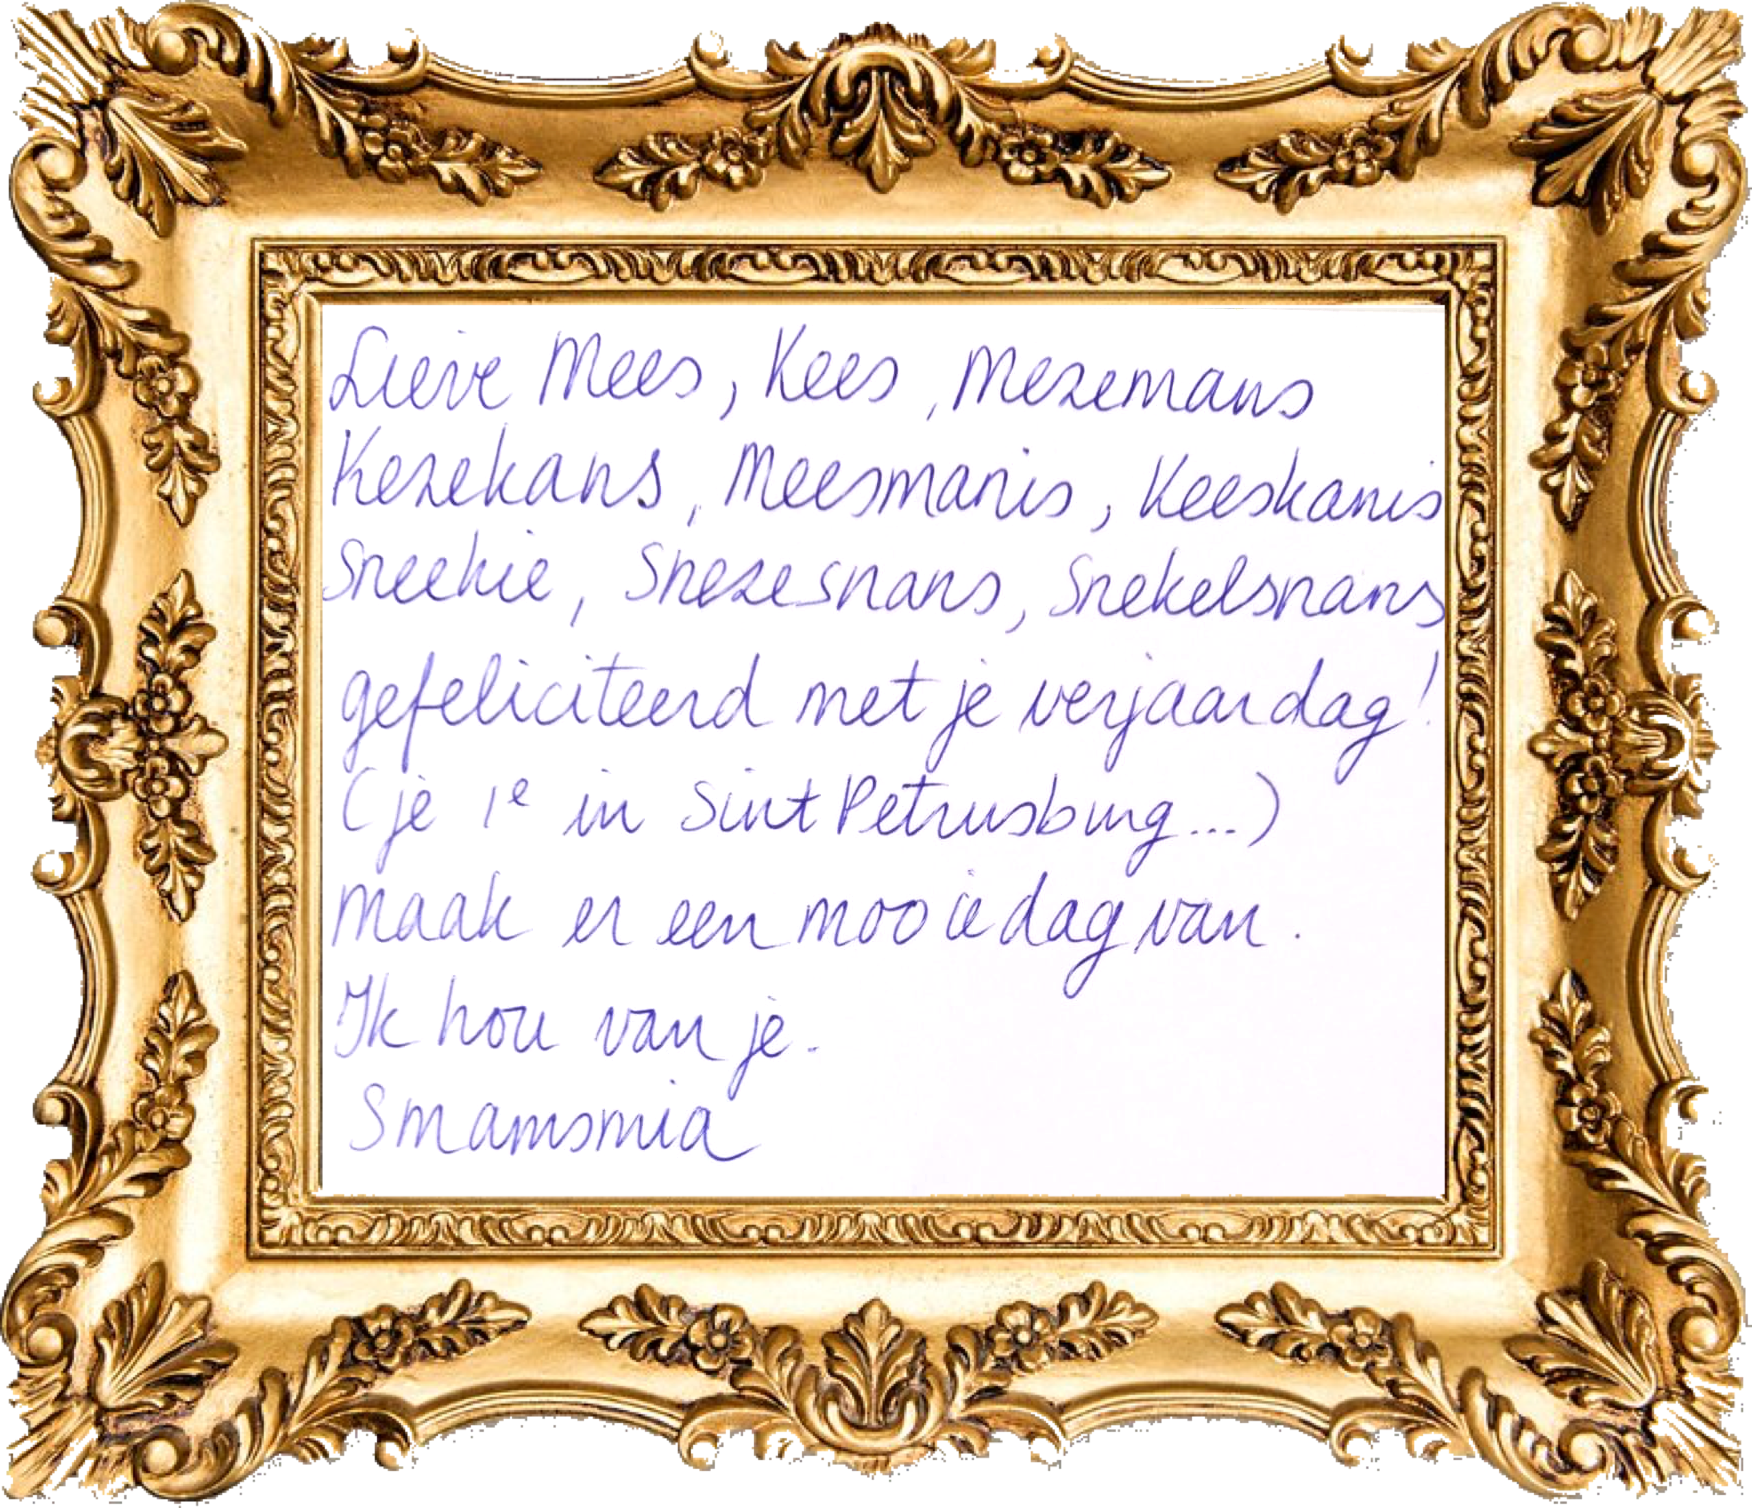 Lieve Mees, Kees, Mezemans
Kezekans, Meesmanis, Keeskanis
Sneekie, Snezesnans, Snekelsnans
gefeliciteerd met je verjaardag!
(je 1e in Sint Petrusburg...)
Maak er een mooie dag van.
Ik hou van je.
Smamsmia